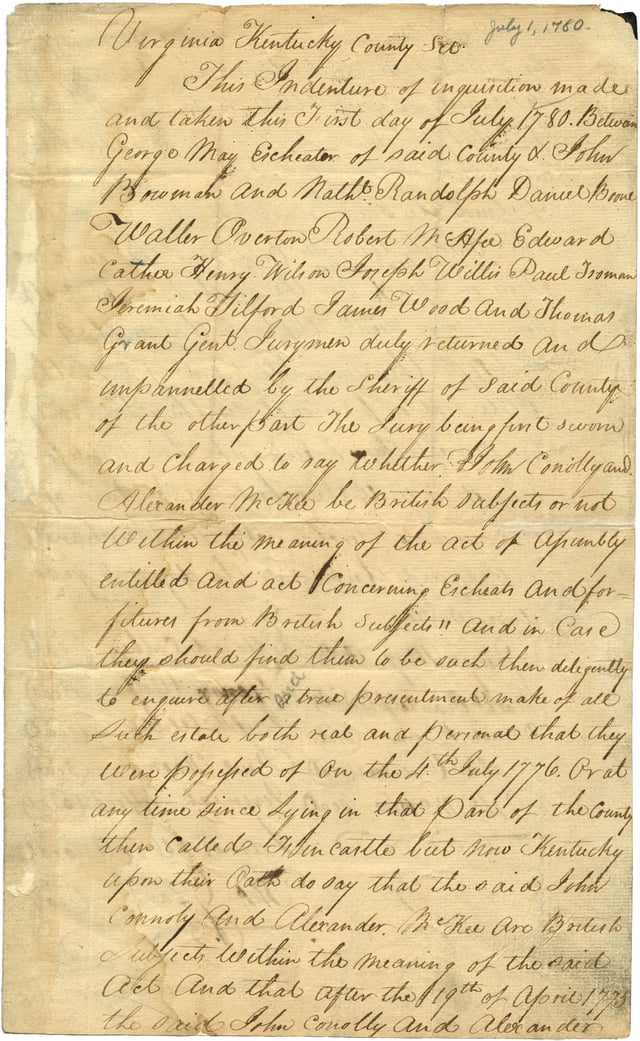 July 1, 1780.
Virginia Kentucky County Sct.
This Indenture of inquisition made
and taken this First day of July 1780. Between
George May Escheater of said County & John
Bowman and Nathl. Randolph Daniel Boone
Waller Overton Robert McAfee Edward
Cather Henry Wilson Joseph Willis Paul Froman
Jeremiah Tilford James Wood And Thomas
Grant Gent. Jurymen duly returned and
impannelled by the Sheriff of Said County
of the other Part The Jury being first sworn
and Charged to say Whether John Conolly and
Alexander McKee be British subjects or not
Within the meaning of the act of Assembly
entitled And act Concerning Escheats And for=
fitures from British Subjects" And in Case
they should find them to be such then diligently
to enquire after and true presentment make of all
Such estate both real and personal that they
were possessed of On the 4th July 1776. Or at
any time since Lying in that Part of the County
then Called Fincastle but now Kentucky
upon their Oath do say that the said John
Connoly And Alexander McKee Are British
Subjects Within the meaning of the said
Act And that after the 19th of April 1775
the said John Conolly And Alexander